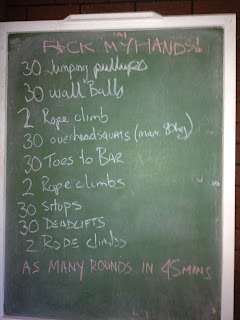 F*CK MY HANDS!
30 Jumping pullups
30 wall Balls
2 Rope climb
30 overheadsquats
30 Toes to BAR
2 Rope climbs
30 situps
30 DEADLIFTS
2 ROPE climbs
AS MANY ROUNDS IN 45MINS